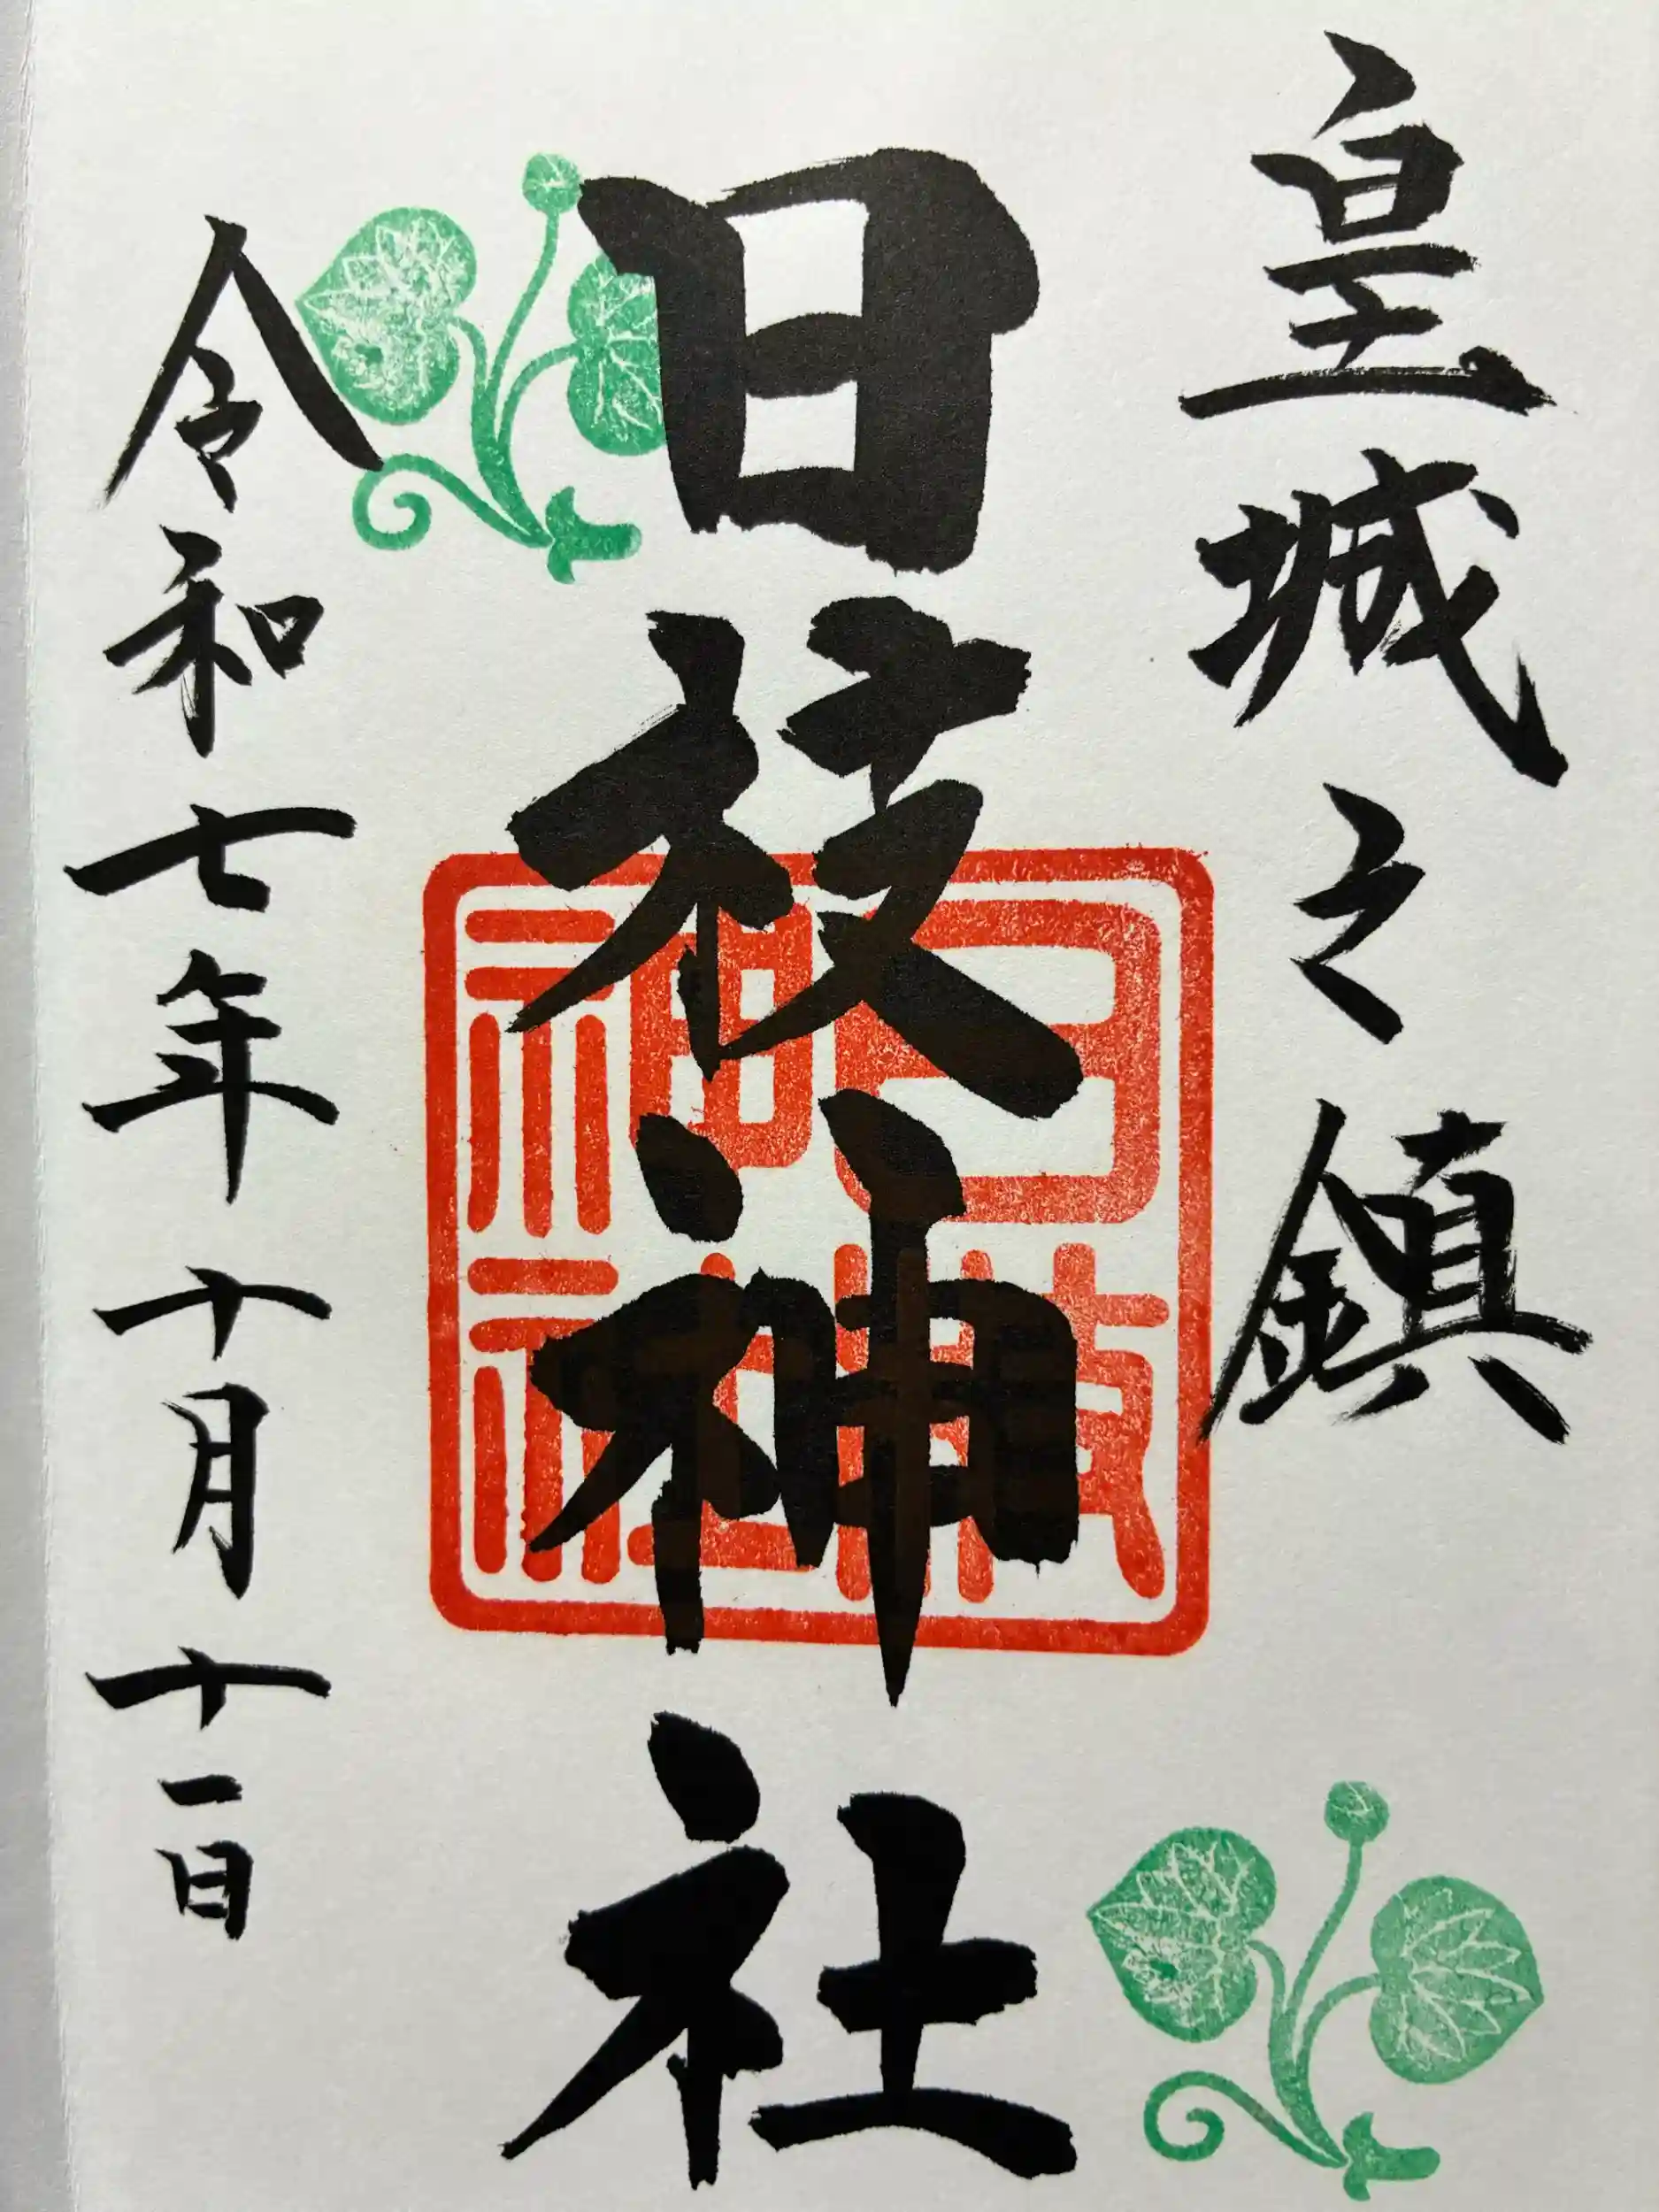 皇城之鎮
日枝神社
日枝
神社
令和七年十月十一日